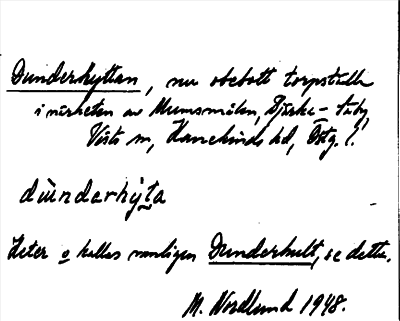 Dunderhyttan, nu obebott torpställe
i närheten av Mumsmålen, Björke-Säby,
Vists sn, Hanekinds hd, Östg. l.
dùnderhy̢ta
Heter o kallas vanligen Dunderhult, se detta.
M. Nordlund 1948.